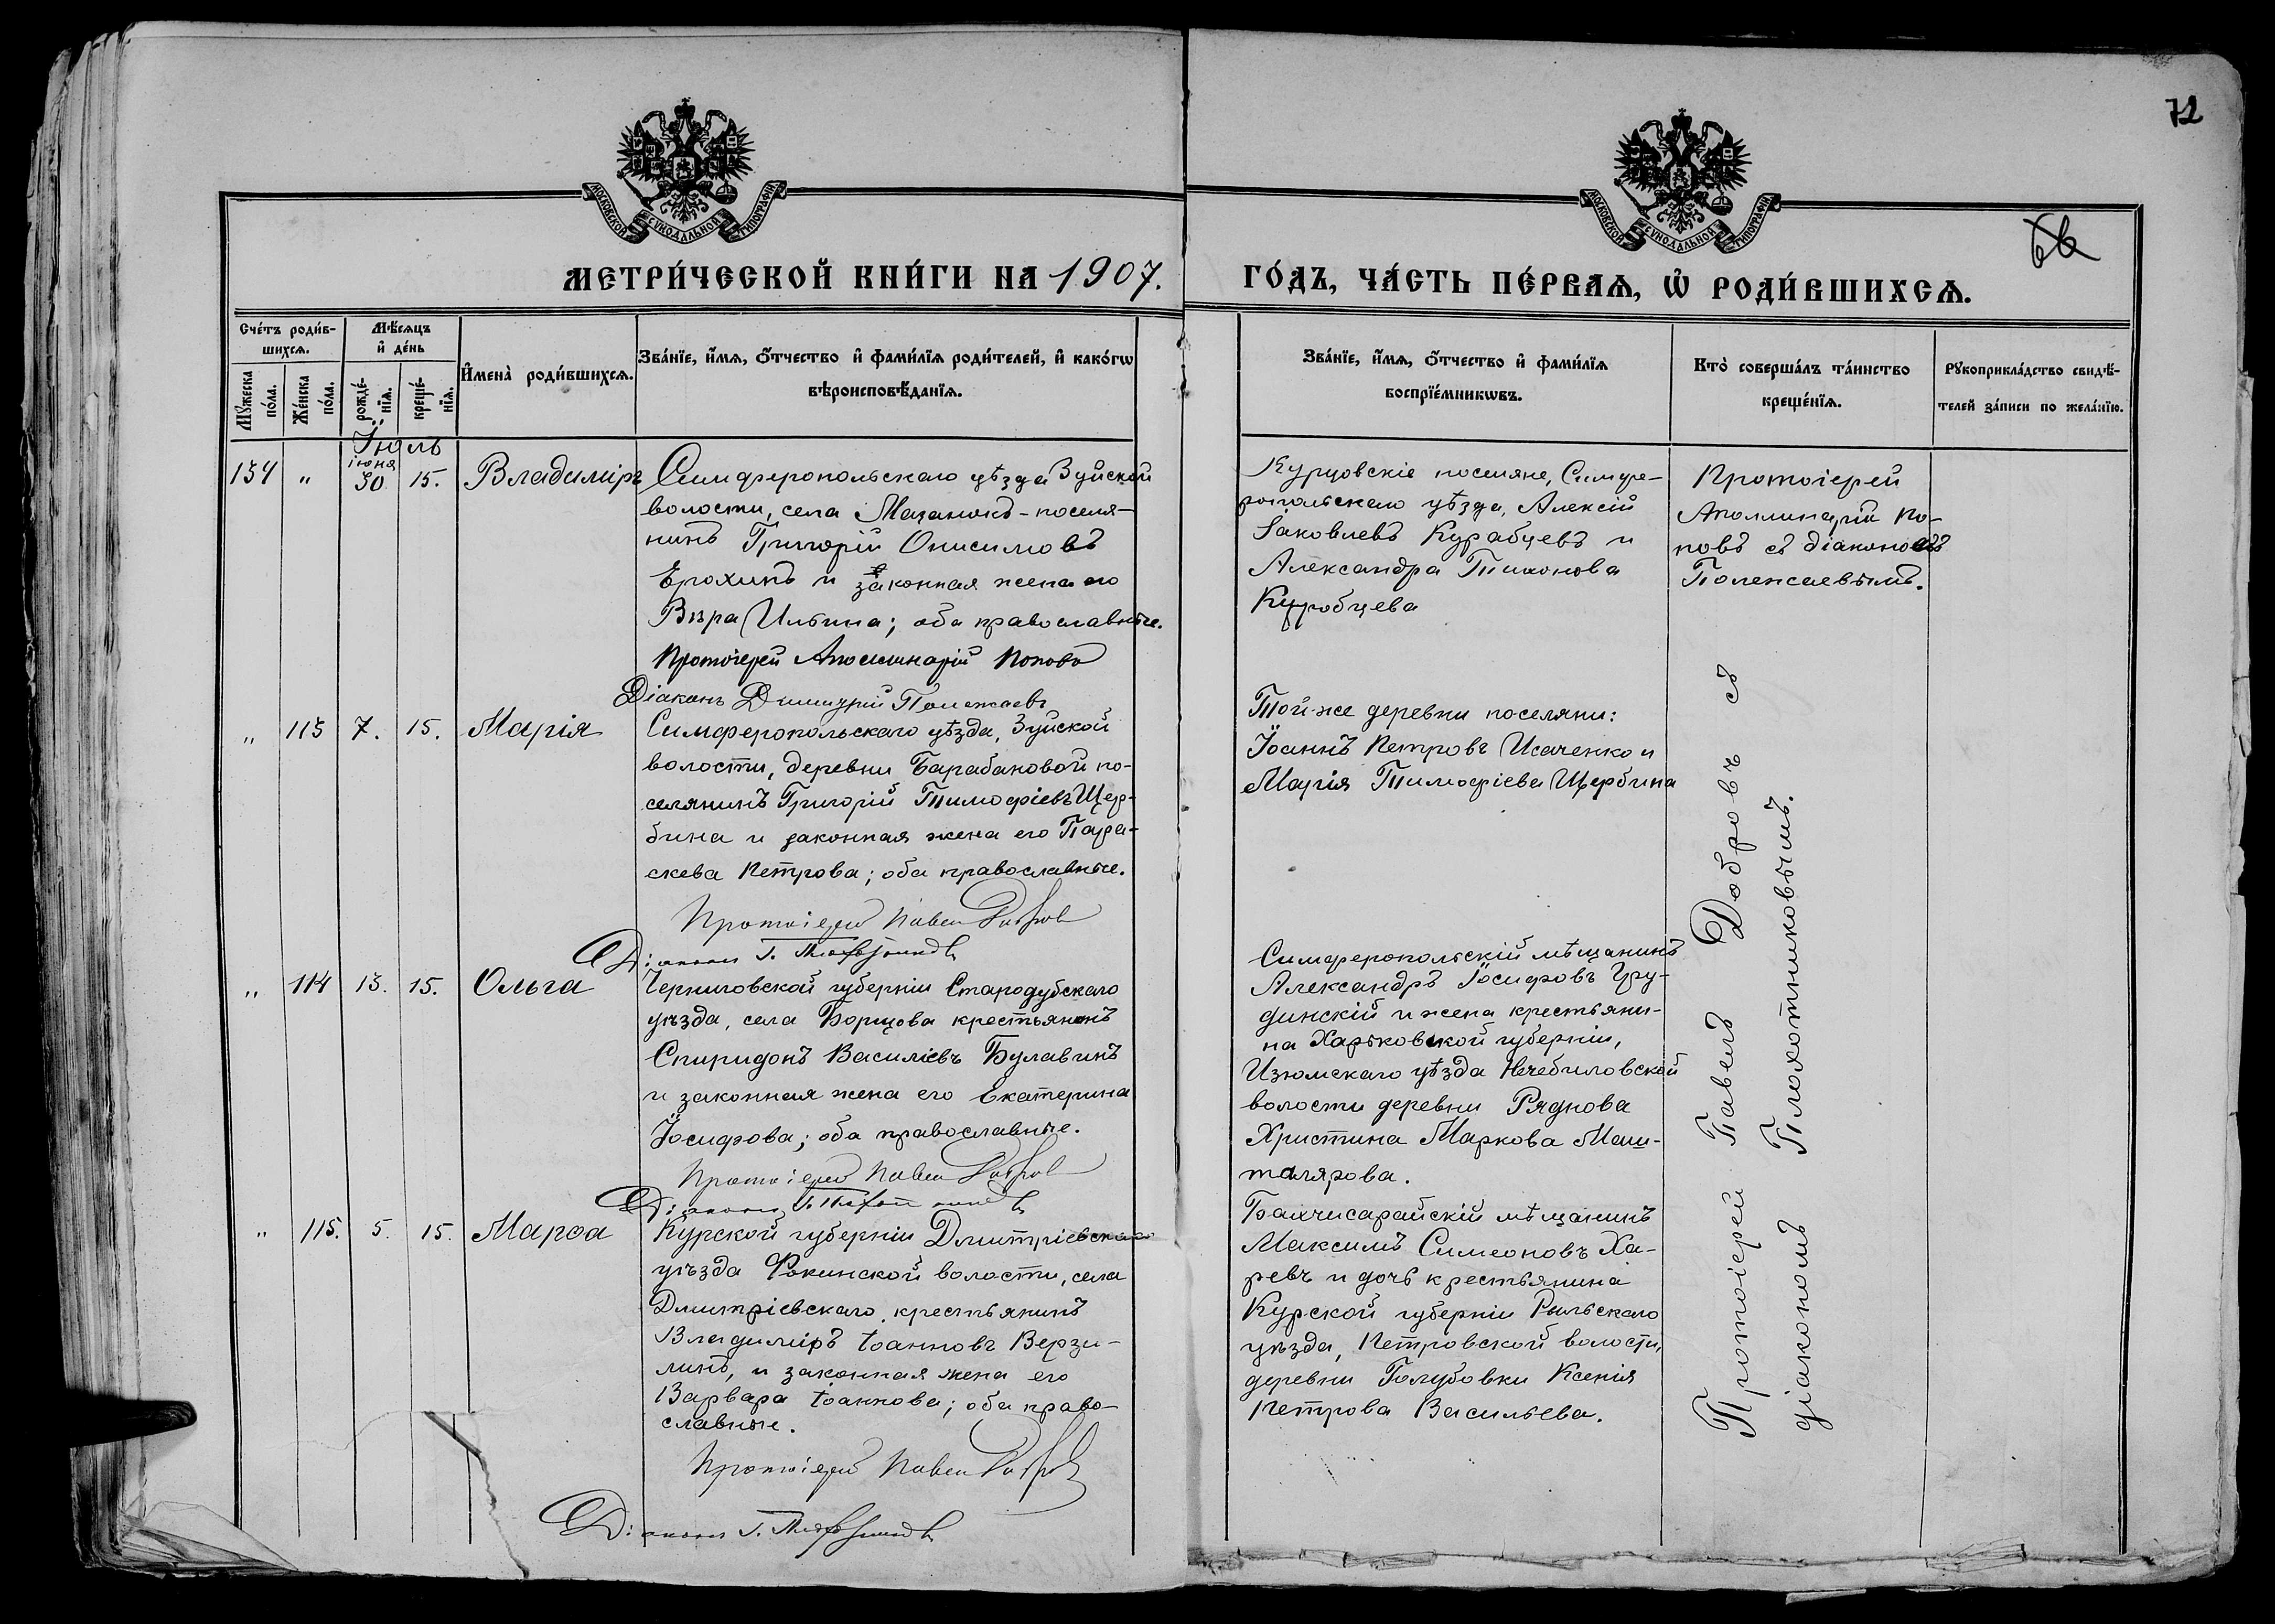 72
66
МОСКОВСКОЙ СѴНОДАЛЬНОЙ ТИПОГРАФІИ
МОСКОВСКОЙ СѴНОДАЛЬНОЙ ТИПОГРАФІИ
МЕТРИ́ЧЕСКОЙ КНИ́ГИ НА 1907.
ГО́ДЪ, ЧА́СТЬ ПЕ́РВАѦ, Ѡ҆ РОДИ́ВШИХСѦ.
Сче́тъ роди́в-
шихсѧ.
Мѣ́сѧцъ
и҆ де́нь
Мꙋ́жеска
по́ла.
Же́нска
по́ла.
рожде́-
нїѧ.
креще́-
нїѧ.
И҆мена̀ роди́вшихсѧ.
Зва́нїе, и҆́мѧ, ѻ҆́тчество и҆ фами́лїѧ роди́телей, и҆ како́гѡ
вѣроисповѣ́данїѧ.
Зва́нїе, и҆́мѧ, ѻ҆́тчество и҆ фами́лїѧ
воспрїе́мникѡвъ.
Кто̀ соверша́лъ та́инство
креще́нїѧ.
Рꙋкоприкла́дство свидѣ́-
телей за́писи по жела́нїю.
Іюль
іюня
134 " 30 15. Владиміръ
Симферопольскаго уѣзда Зуйской
волости, села Мазанокъ - поселя-
нинъ Григорій Онисимовъ
Ерохинъ и законная жена его
Вѣра Ильина; оба православные.
Протоіерей Аполлинарій Поповъ
Діаконъ Димитрій Полежаевъ
Курцовскіе поселяне, Симфе-
ропольскаго уѣзда, Алексій
Іаковлевъ Курабцевъ и
Александра Тихонова
Куробцева
Протоіерей
Аполлинарій По-
повъ съ діакономъ
Полежаевымъ.
" 113 7. 15. Марія
Симферопольскаго уѣзда, Зуйской
волости, деревни Барабановой по-
селянинъ Григорій Тимофіевъ Щер-
бина и законная жена его Пара-
скева Петрова; оба православные.
Протоіерей Павел Добров
Діаконъ Г. Плохотниковъ
Той-же деревни поселяни:
Іоаннъ Петровъ Исаченко и
Марія Тимофіева Щербина
" 114 13. 15. Ольга
Черниговской губерніи Стародубскаго
уѣзда, села Борщова крестьянинъ
Спиридонъ Василіевъ Булавинъ
и законная жена его Екатерина
Іосифова; оба православные.
Протоіерей Павел Добров
Діаконъ Г. Плохотниковъ
Симферопольскій мѣщанинъ
Александръ Іосифовъ Гру-
динскій и жена крестьяни-
на Харьковской губерніи,
Изюмскаго уѣзда
волости деревни Ряднова
Христина Маркова Маш-
талярова.
" 115. 5. 15. Марѳа
Курской губерніи Дмитріевскаго
уѣзда Фокинской волости, села
Дмитріевскаго крестьянинъ
Владиміръ Іоанновъ Верзи-
линъ, и законная жена его
Варвара Іоаннова; оба право-
славные.
Протоіерей Павел Добров
Діаконъ Г. Плохотниковъ
Бахчисарайскій мѣщанинъ
Максимъ Симеоновъ Ха-
ревъ и дочь крестьянина
Курской губерніи Рыльскаго
уѣзда, Петровской волости,
деревни Голубовки Ксенія
Петрова Васильева.
Протоіерей Павелъ Добровъ съ
діакономъ Плохотниковымъ.